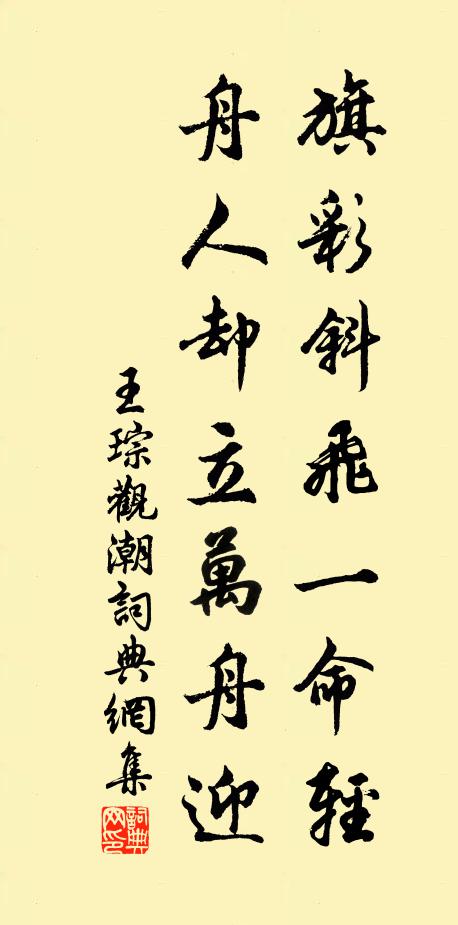 旗彩斜飛一命輕
舟人却立萬舟迎
王琮觀潮詞典網集
詞典網印